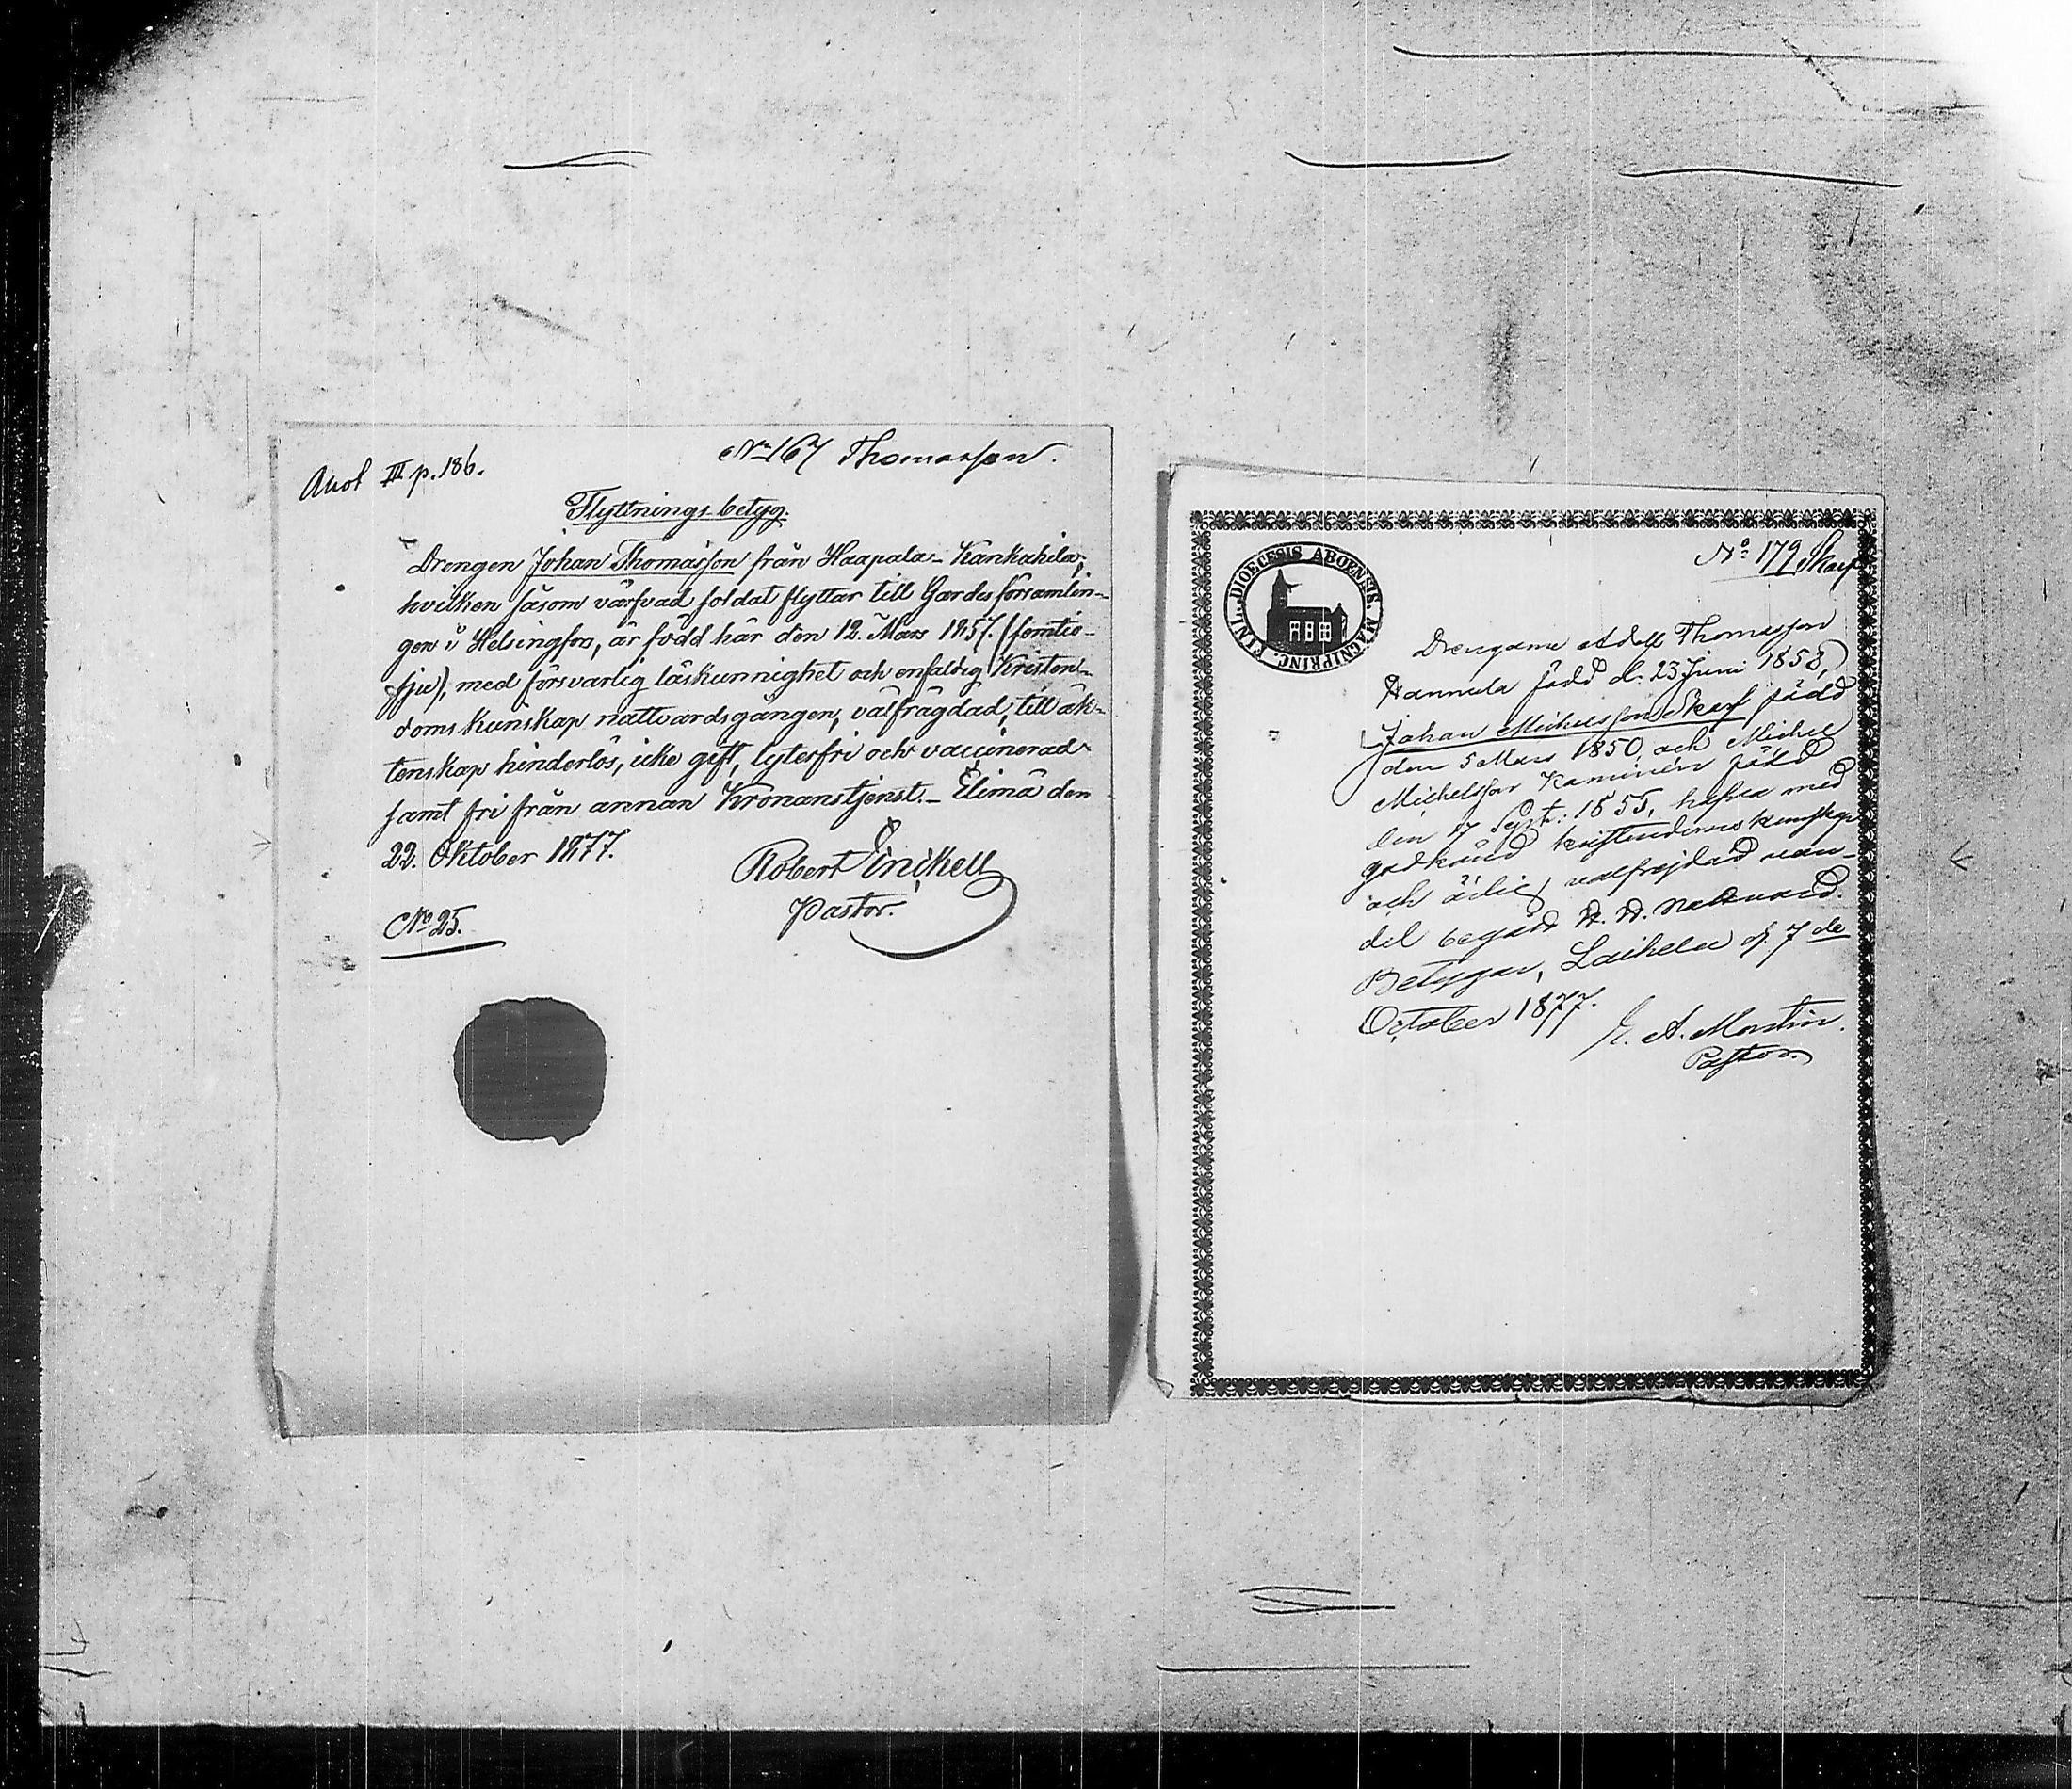 Anot III p. 186.
No 167 Thomasson.
Flyttningsbetyg.
Drengen Johan Thomasson från Haapala-Kankahila,
hvilken såsom värfvad soldat flyttar till Gardesförsamlin-
gen i Helsingfors, är född här den 12. Mars 1857. (femtio-
sju), med försvarlig läskunnighet och enfaldig Kristen-
domskunskap nattvardsgången, välfrägdad, till äk-
tenskap hinderlös, icke gift, lytesfri och vaccinerad
samt fri från annan Kronanstjenst. Elimä den
22. Oktober 1877.
Robert
Pastor.
No 25.
DIOECESIS ABOENSIS. MAGNI PRINC. FINL.
No 179 Skarf
Drengarne Adolf Thomasson
Hannula född d. 23 Juni 1858,
Johan Michelsson Skarf född
den 5 Mars 1850, och Michel
Michelsson Kaminen född
den 17 Sept: 1855, hafva med
godkänd kristendomskunskap
och ärlig, välfrejdad van-
del begått H. H. Nattvard.
Betygar, Laihela d. 7 de
October 1877.
E. A. Montin.
Pastor.